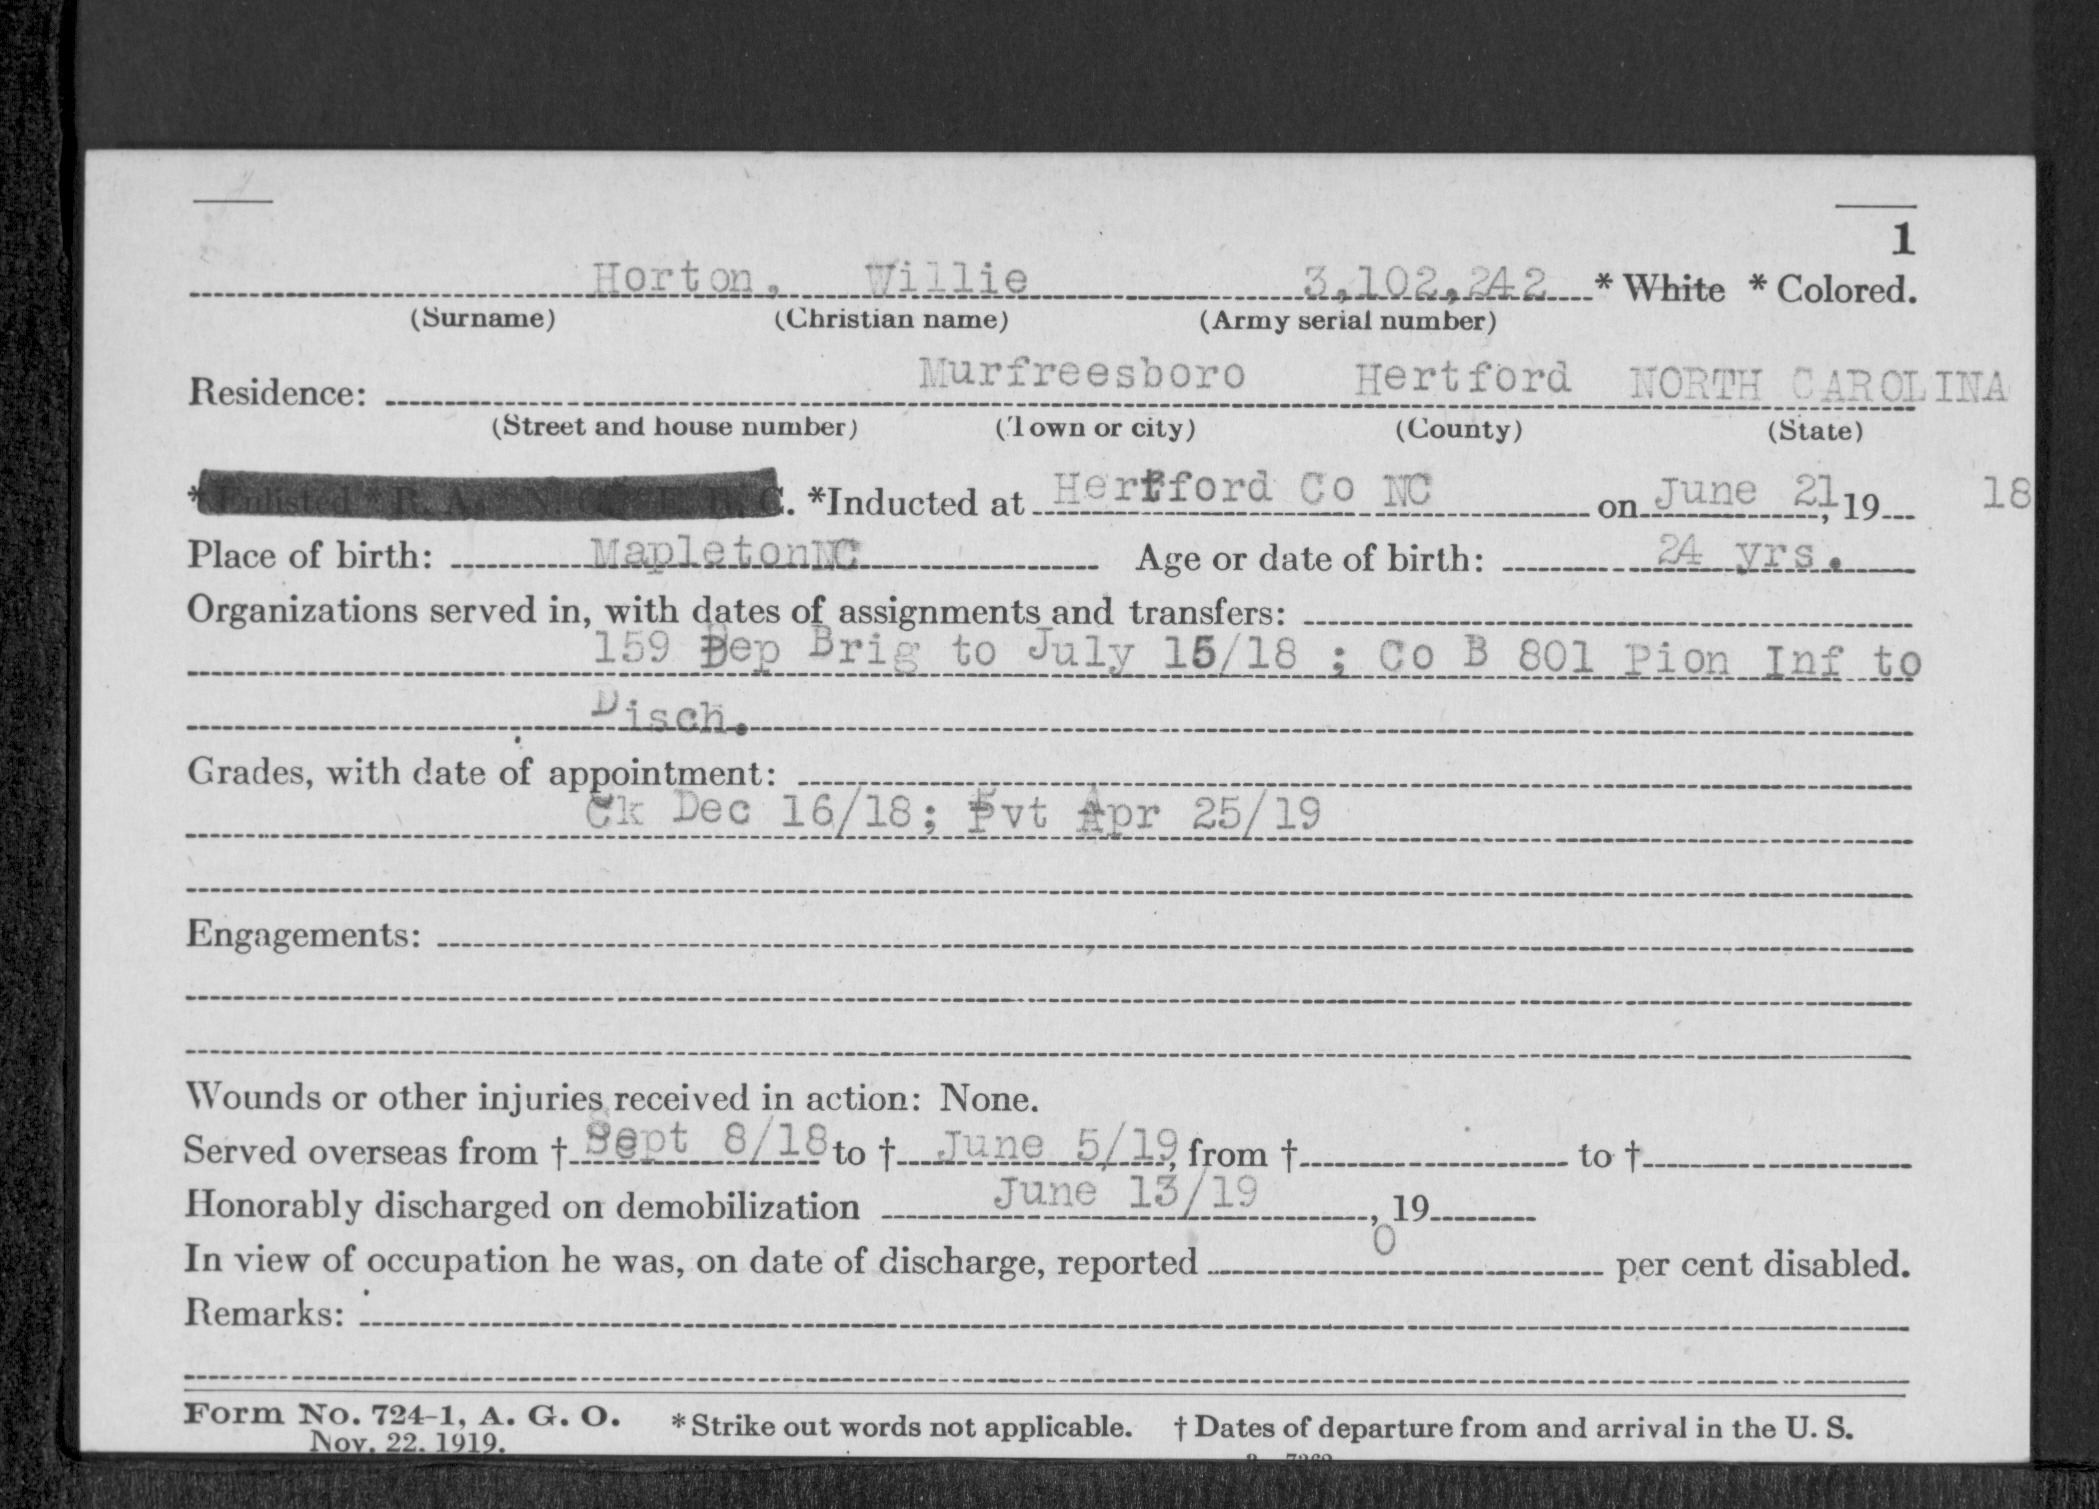 1
Horton, Willie 3,102,242 * White * Colored.
(Surname) (Christian name) (Army serial number)
Residence: Murfreesboro Hertford NORTH CAROLINA
(Street and house number) (Town or city) (County) (State)
* Enlisted * R. A. * N. G. * E. R. C. *Inducted at Hertford Co NC on June 21, 19 18
Place of birth: Mapleton NC Age or date of birth: 24 yrs.
Organizations served in, with dates of assignments and transfers:
159 Dep Brig to July 15/18 ; Co B 801 Pion Inf to
Disch.
Grades, with date of appointment:
Ck Dec 16/18; Pvt Apr 25/19
Engagements:
Wounds or other injuries received in action: None.
Served overseas from † Sept 8/18 to † June 5/19, from † to †
Honorably discharged on demobilization June 13/19, 19
In view of occupation he was, on date of discharge, reported 0 per cent disabled.
Remarks:
Form No. 724-1, A. G. O. * Strike out words not applicable. † Dates of departure from and arrival in the U. S.
Nov. 22. 1919.